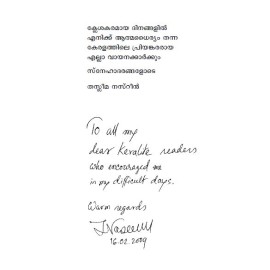 ക്ലേശകരമായ ദിനങ്ങളിൽ
എനിക്ക് ആത്മധൈര്യം തന്ന
കേരളത്തിലെ പ്രിയങ്കരരായ
എല്ലാ വായനക്കാർക്കും
സ്നേഹാദരങ്ങളോടെ
തസ്ലീമ നസ്റീൻ
To all my
dear Keralite readers
who encouraged me
in my difficult days.
Warm regards
TNasreen
16.02.2009